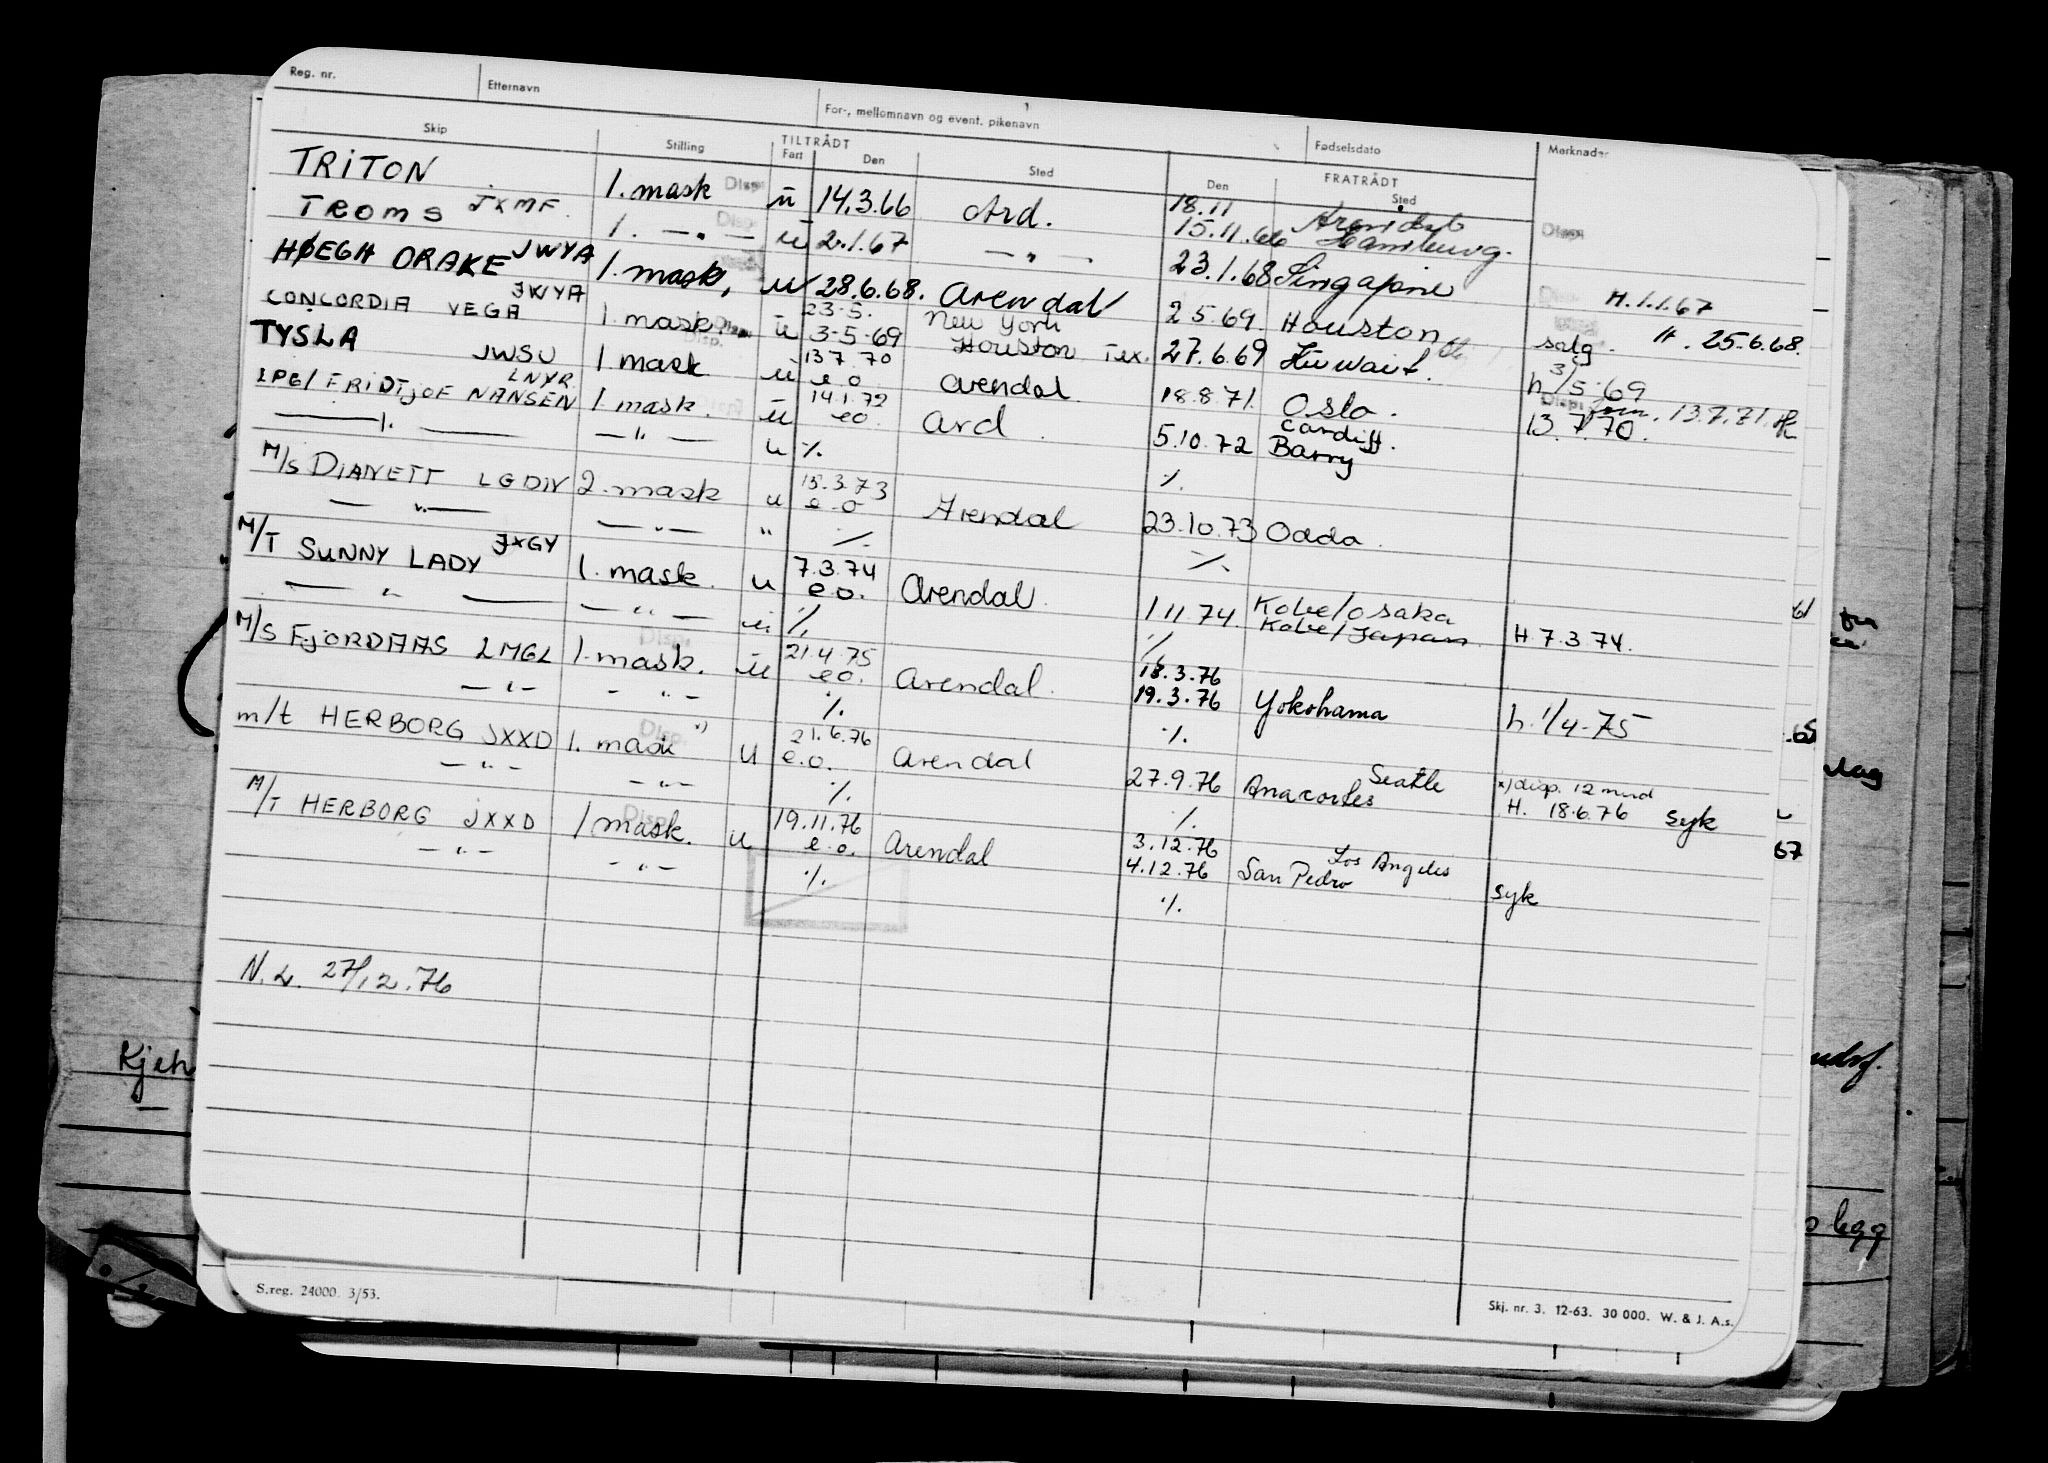 Reg. nr. Etternavn For-, mellomnavn og event. pikenavn Fødselsdato Merknader
Skip Stilling TILTRÅDT Fart Den Sted FRATRÅDT Den Sted
TRITON 1. mask Disp. u 14.3.66 Ard. 18.11 Arendal Disp.
TROMS JXMF. 1. — " — Disp. u 2.1.67 — " — 15.11.66 Hamburg. H. 1.1.67
HØEGH DRAKE JWYA 1. mask, u 28.6.68. Arendal 23.1.68 Singapine H. 25.6.68.
CONCORDIA VEGA JWYA 1. mask. Disp. u 23.5. 3-5-69 New York Houston Tex. 2 5 69. Houston salg.
TYSLA JWSU 1 mask Disp. u 13 7 70 e o Arendal 27.6.69 Kuwait. h 3/5-69
LPG/ FRIDTJOF NANSEN LNYR. 1 mask. u 14.1.72 eo. Ard. 18.8 71. Oslo. Disp. 13.7.71. 13.7.70.
— " — — " — u ./. 5.10.72 Cardiff. Barry
M/S DIANETT LGDN 2. mask u 15.3.73 e.o Arendal ./.
— " — — " — " ./. 23.10.73 Odda.
M/T SUNNY LADY JXGY 1. mask. u 7.3.74 e o. Arendal. ./.
— " — — " — u. ./. 1 11 74. Kobe/Osaka Kobe/Japan H 7.3.74.
M/S FJORDAAS LMGL 1. mask. Disp. u 21.4.75 eo. Arendal. ./.
— " — - " - ./. 18.3.76 19.3.76 Yokohama h. 1/4-75
m/t HERBORG JXXD 1. mask x) Disp. u 21.6.76 e.o. Arendal ./.
— " — — " — ./. 27.9.76 Seattle Anacortes x) disp. 12 mnd H. 18.6.76 syk
M/T HERBORG JXXD 1 mask. Disp. u 19.11.76 e.o. Arendal ./.
— " — - " - ./. 3.12.76 4.12.76 Los Angeles San Pedro syk
./.
N.L. 27/12.76
Kjeh
lag
67
legg
S.reg. 24000. 3/53.
Skj. nr. 3. 12-63. 30 000. W. & J. A.s.